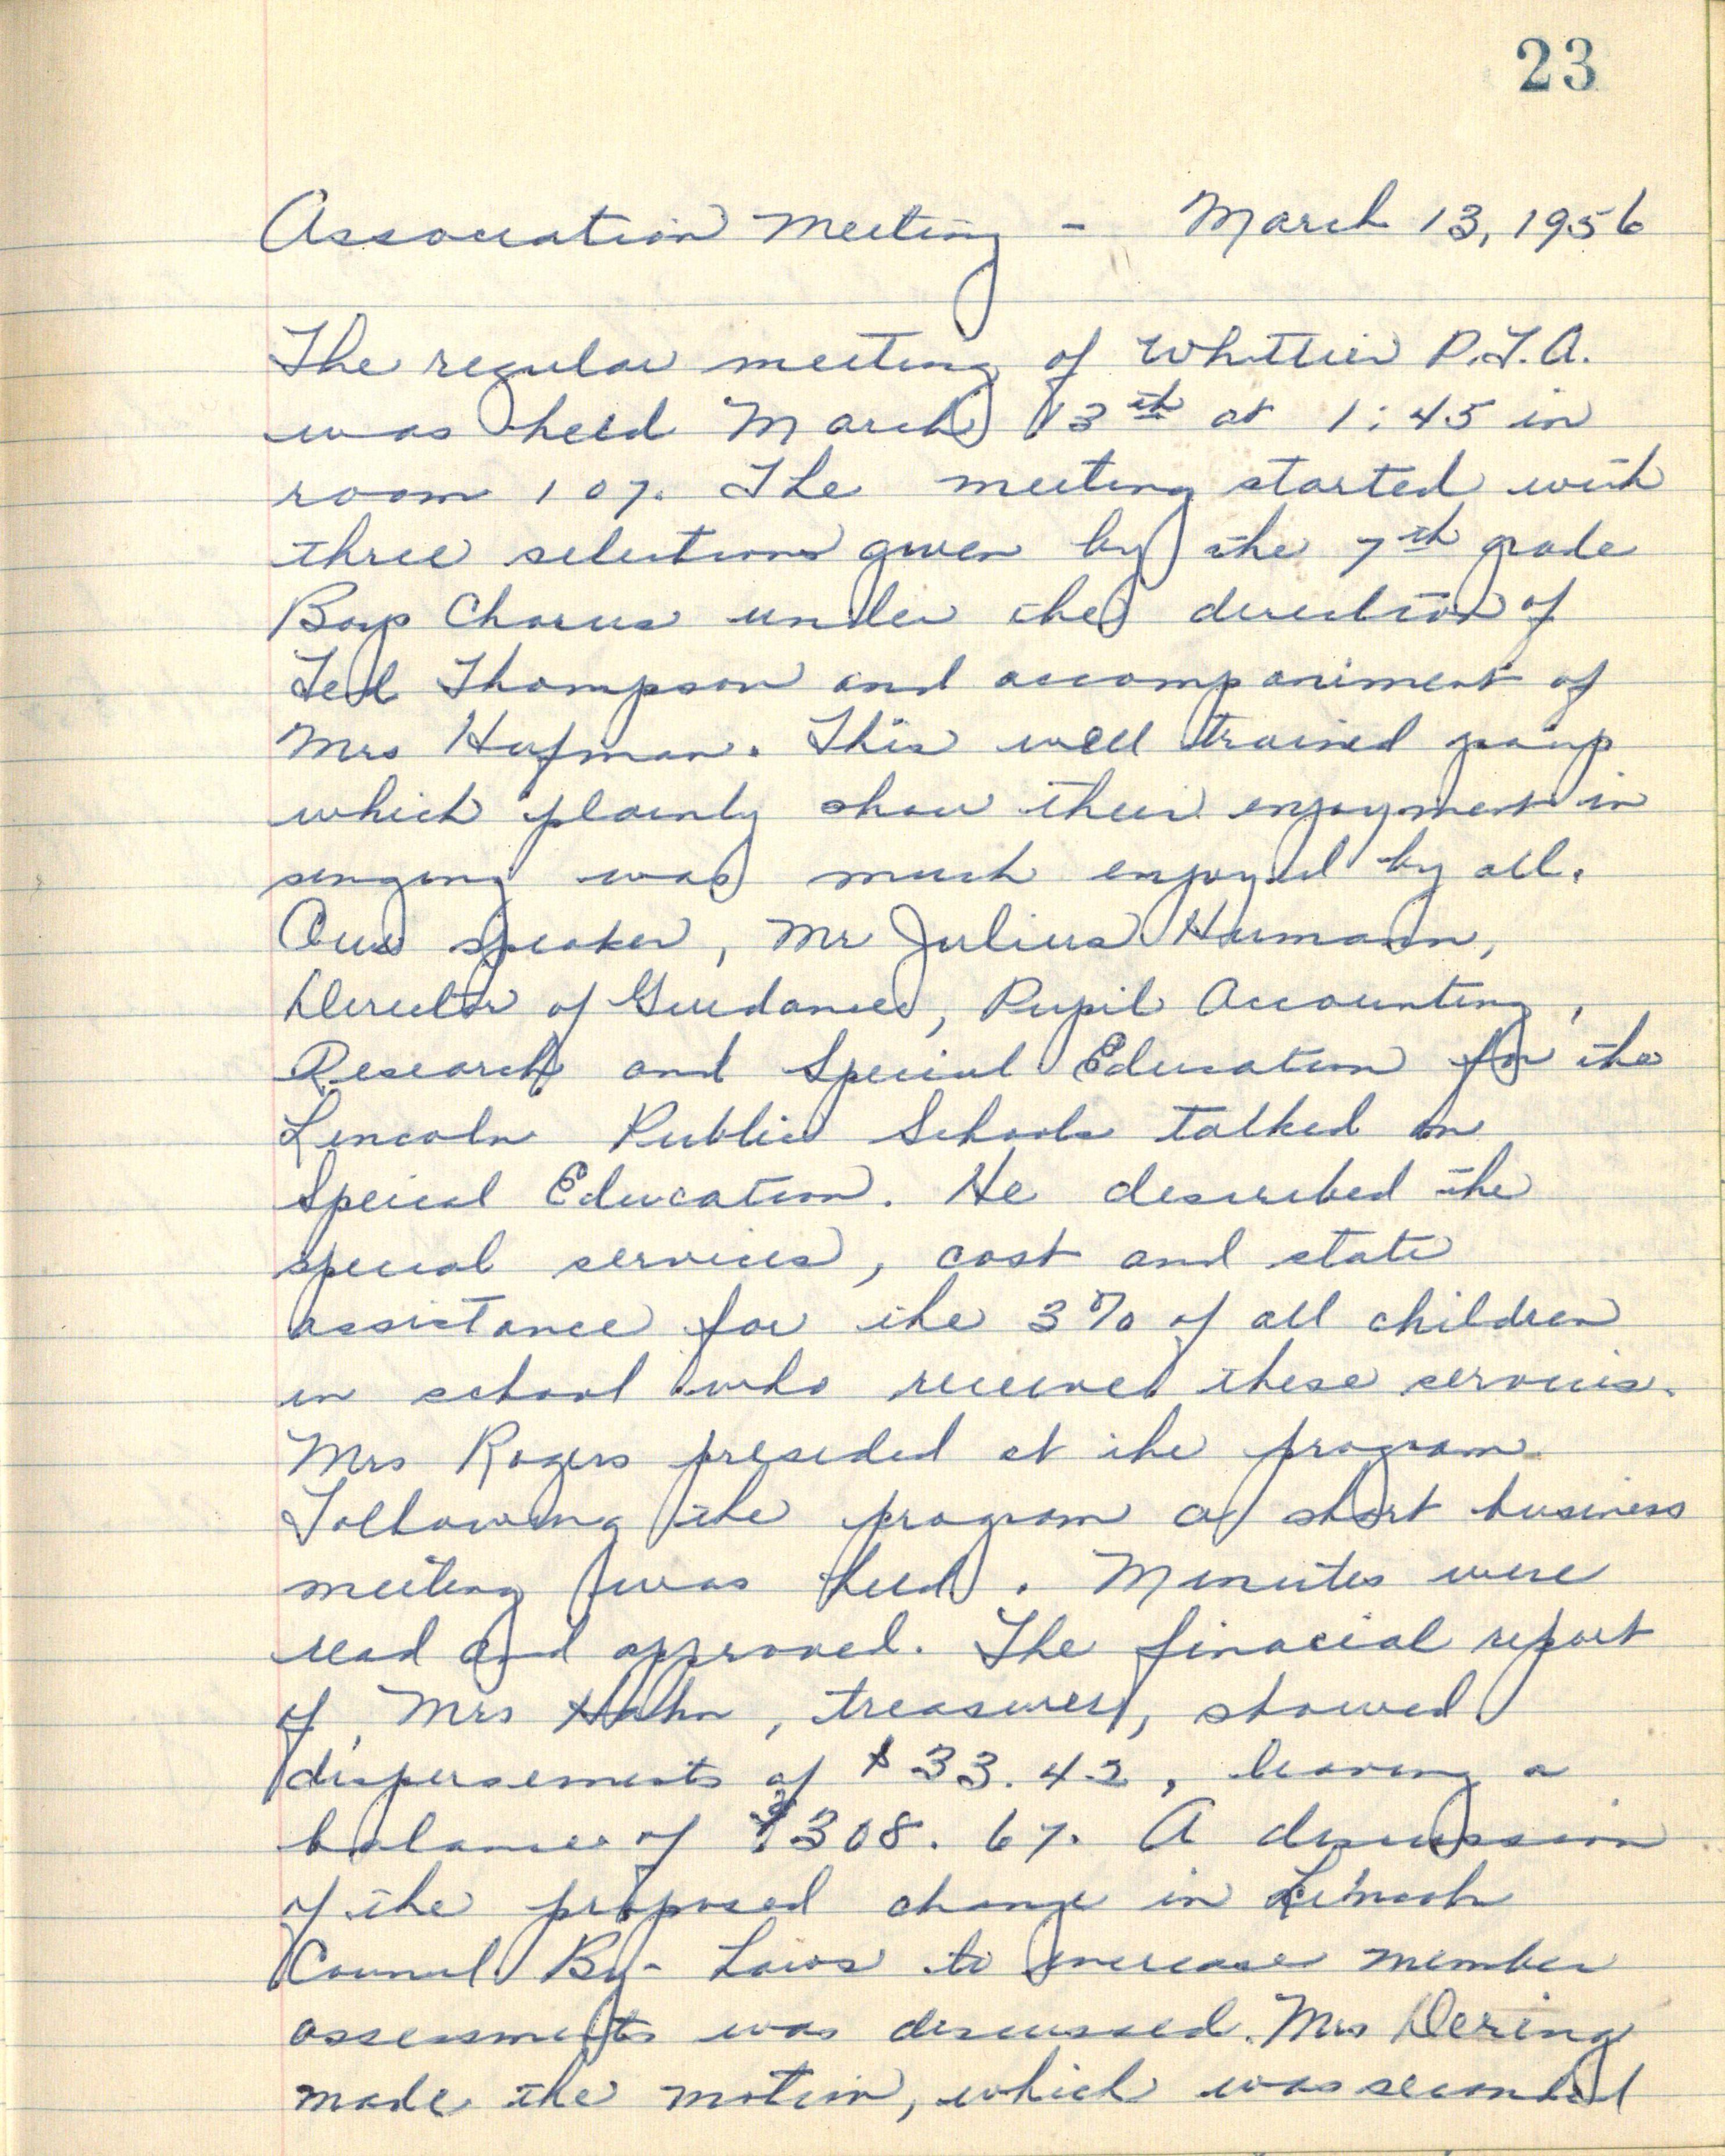 23
Association Meeting - March 13, 1956
The regular meeting of Whittier P.T.A.
was held March 13th at 1:45 in
room 107. The meeting started with
three selections given by the 7th grade
Boys Chorus under the direction of
Ted Thompson and accompaniment of
Mrs Hufman. This well trained group
which plainly show their enjoyment in
singing was much enjoyed by all.
Our speaker, Mr Julius Humann,
Director of Guidance, Pupil Accounting,
Research and Special Education for the
Lincoln Public Schools talked on
Speical Education. He described the
special services, cost and state
assistance for the 3% of all children
in school who received these services.
Mrs Rogers presided at the program
Following the program a short business
meeting was held. Minutes were
read and approved. The finacial report
of Mrs Hahn, treasurer, showed
dispersements of $33.42, leaving a
balance of $308.67. A discussion
of the proposed change in Lincoln
Council By-Laws to increase member
assessments was discussed. Mrs Dering
made the motion, which was seconded